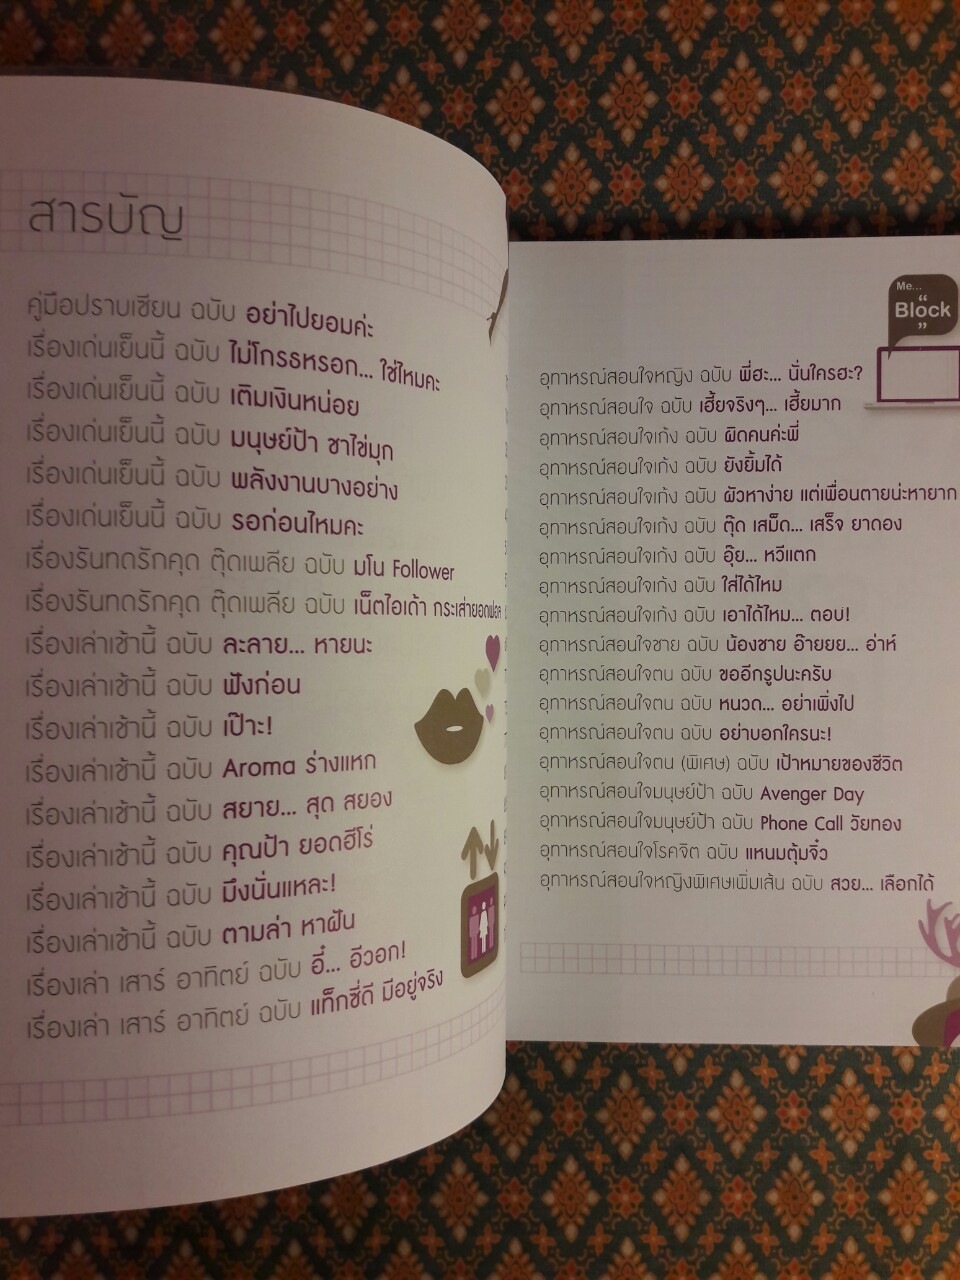 สารบัญ
คู่มือปราบเซียน ฉบับ อย่าไปยอมค่ะ
เรื่องเด่นเย็นนี้ ฉบับ ไม่โกรธหรอก... ใช่ไหมคะ
เรื่องเด่นเย็นนี้ ฉบับ เติมเงินหน่อย
เรื่องเด่นเย็นนี้ ฉบับ มนุษย์ป้า ชาไข่มุก
เรื่องเด่นเย็นนี้ ฉบับ พลังงานบางอย่าง
เรื่องเด่นเย็นนี้ ฉบับ รอก่อนไหมคะ
เรื่องรันทดรักคุด ตุ๊ดเพลีย ฉบับ มโน Follower
เรื่องรันทดรักคุด ตุ๊ดเพลีย ฉบับ เน็ตไอเด้า กระเส่ายอดฟอล
เรื่องเล่าเช้านี้ ฉบับ ละลาย... หายนะ
เรื่องเล่าเช้านี้ ฉบับ ฟังก่อน
เรื่องเล่าเช้านี้ ฉบับ เป๊าะ!
เรื่องเล่าเช้านี้ ฉบับ Aroma ร่างแหก
เรื่องเล่าเช้านี้ ฉบับ สยาย... สุด สยอง
เรื่องเล่าเช้านี้ ฉบับ คุณป้า ยอดฮีโร่
เรื่องเล่าเช้านี้ ฉบับ มึงนั่นแหละ!
เรื่องเล่าเช้านี้ ฉบับ ตามล่า หาฝัน
เรื่องเล่า เสาร์ อาทิตย์ ฉบับ อี๋... อีวอก!
เรื่องเล่า เสาร์ อาทิตย์ ฉบับ แท็กซี่ดี มีอยู่จริง
Me...
“
Block
”
อุทาหรณ์สอนใจหญิง ฉบับ พี่ฮะ... นั่นใครฮะ?
อุทาหรณ์สอนใจ ฉบับ เฮี้ยจริงๆ... เฮี้ยมาก
อุทาหรณ์สอนใจเก้ง ฉบับ ผิดคนค่ะพี่
อุทาหรณ์สอนใจเก้ง ฉบับ ยังยิ้มได้
อุทาหรณ์สอนใจเก้ง ฉบับ ผัวหาง่าย แต่เพื่อนตายน่ะหายาก
อุทาหรณ์สอนใจเก้ง ฉบับ ตุ๊ด เสม็ด... เสร็จ ยาดอง
อุทาหรณ์สอนใจเก้ง ฉบับ อุ๊ย... หวีแตก
อุทาหรณ์สอนใจเก้ง ฉบับ ใส่ได้ไหม
อุทาหรณ์สอนใจเก้ง ฉบับ เอาได้ไหม... ตอบ!
อุทาหรณ์สอนใจชาย ฉบับ น้องชาย อ๊ายยย... อ่าห์
อุทาหรณ์สอนใจตน ฉบับ ขออีกรูปนะครับ
อุทาหรณ์สอนใจตน ฉบับ หนวด... อย่าเพิ่งไป
อุทาหรณ์สอนใจตน ฉบับ อย่าบอกใครนะ!
อุทาหรณ์สอนใจตน (พิเศษ) ฉบับ เป้าหมายของชีวิต
อุทาหรณ์สอนใจมนุษย์ป้า ฉบับ Avenger Day
อุทาหรณ์สอนใจมนุษย์ป้า ฉบับ Phone Call วัยทอง
อุทาหรณ์สอนใจโรคจิต ฉบับ แหนมตุ้มจิ๋ว
อุทาหรณ์สอนใจหญิงพิเศษเพิ่มเส้น ฉบับ สวย... เลือกได้